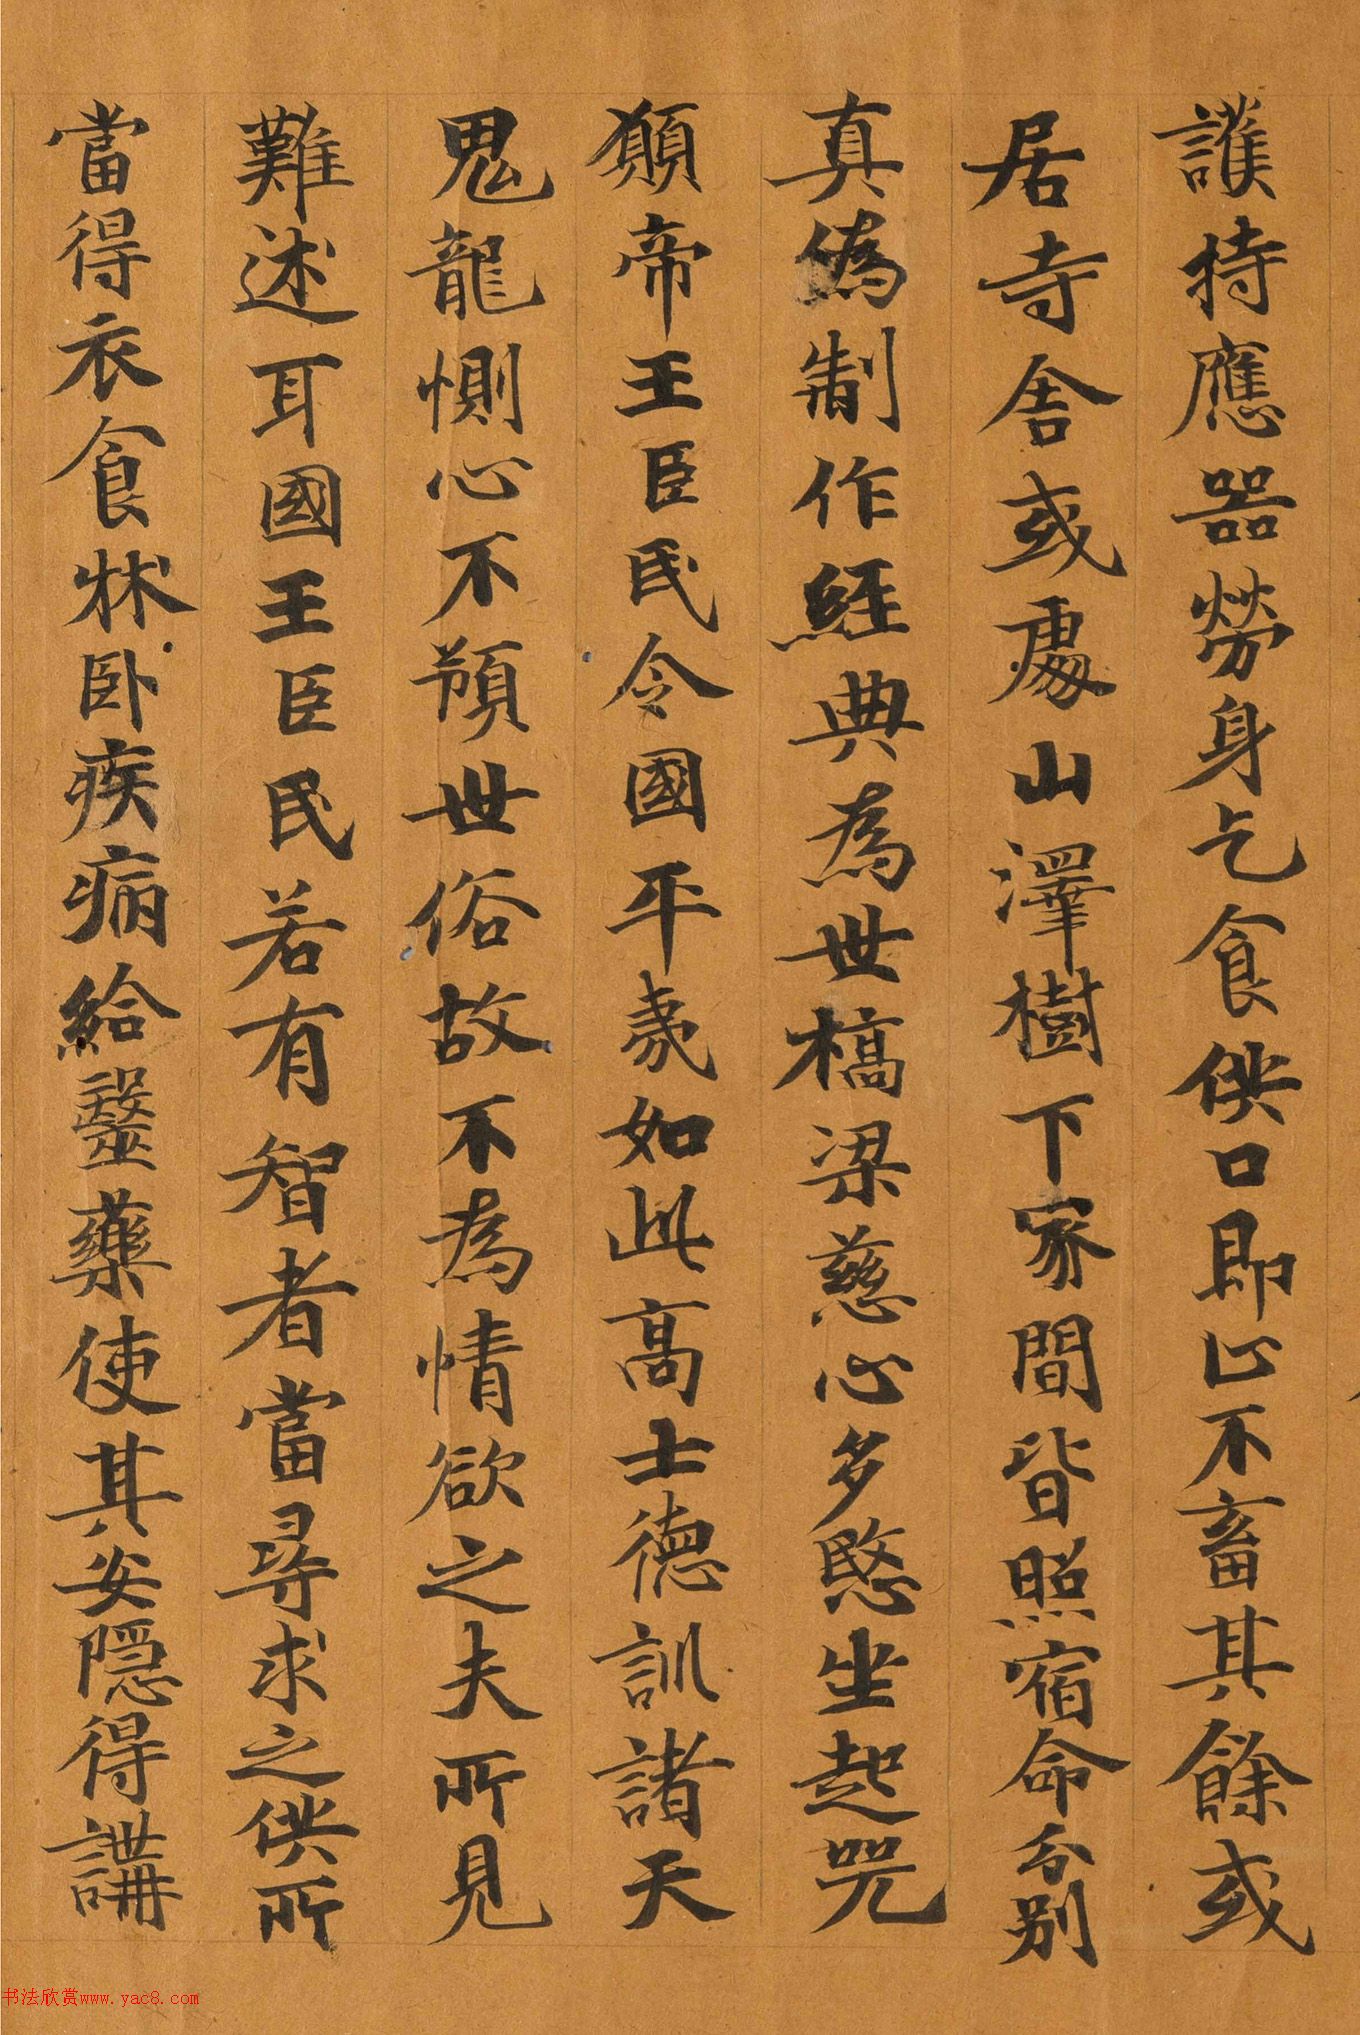 護持應器勞身乞食供口即止不畜其餘或
居寺舍或處山澤樹下冢間皆照宿命分別
真偽制作經典為世橋梁慈心多愍坐起咒
願帝王臣民令國平康如此高士德訓諸天
鬼龍惻心不預世俗故不為情欲之夫所見
難述耳國王臣民若有智者當尋求之供所
當得衣食牀卧疾病給毉藥使其安隱得講
书法欣赏www.yac8.com